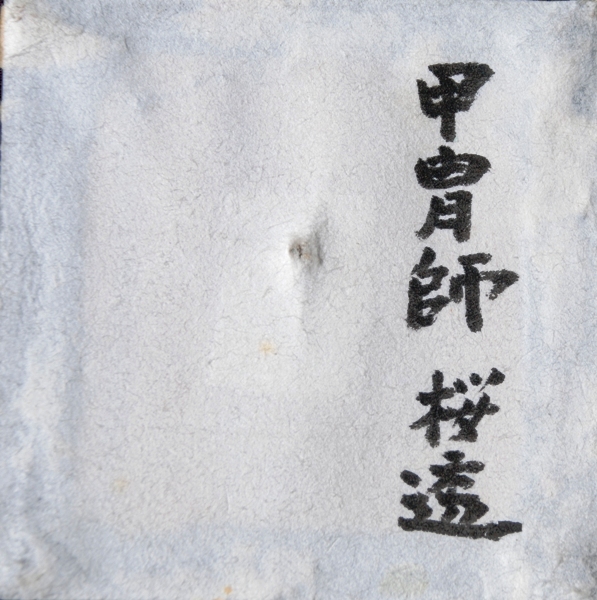 甲冑師 桜透